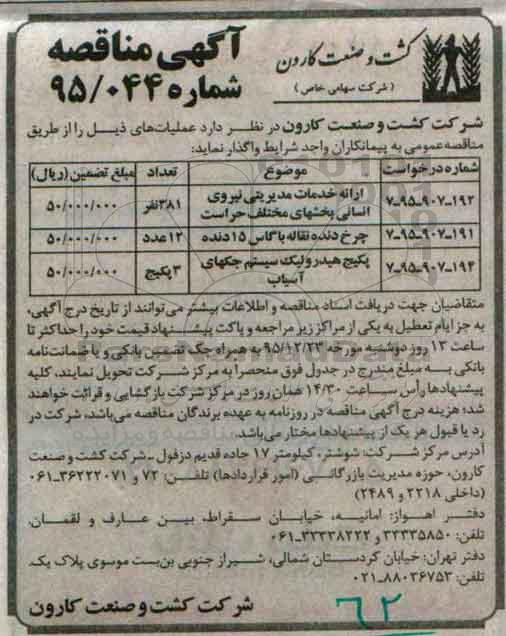 آگهی مناقصه
شماره ۹۵/۰۴۴
کشت و صنعت کارون
(شرکت سهامی خاص)
شرکت کشت و صنعت کارون در نظر دارد عملیات‌های ذیل را از طریق
مناقصه عمومی به پیمانکاران واجد شرایط واگذار نماید:
شماره درخواست موضوع تعداد مبلغ تضمین (ریال)
۷-۹۵-۹۰۷-۱۹۲ ارائه خدمات مدیریتی نیروی انسانی بخشهای مختلف حراست ۳۸۱نفر ۵۰/۰۰۰/۰۰۰
۷-۹۵-۹۰۷-۱۹۱ چرخ دنده نقاله باگاس ۱۵ دنده ۱۲عدد ۵۰/۰۰۰/۰۰۰
۷-۹۵-۹۰۷-۱۹۴ پکیج هیدرولیک سیستم جکهای آسیاب ۳پکیج ۵۰/۰۰۰/۰۰۰
متقاضیان جهت دریافت اسناد مناقصه و اطلاعات بیشتر می‌توانند از تاریخ درج آگهی،
به جز ایام تعطیل به یکی از مراکز زیر مراجعه و پاکت پیشنهاد قیمت خود را حداکثر تا
ساعت ۱۳ روز دوشنبه مورخه ۹۵/۱۲/۲۳ به همراه چک تضمین بانکی و یا ضمانت‌نامه
بانکی به مبلغ مندرج در جدول فوق منحصرا به مرکز شرکت تحویل نمایند، کلیه
پیشنهادها رأس ساعت ۱۴/۳۰ همان روز در مرکز شرکت بازگشایی و قرائت خواهند
شد؛ هزینه درج آگهی مناقصه در روزنامه به عهده برندگان مناقصه می‌باشد، شرکت در
رد یا قبول هر یک از پیشنهادها مختار می‌باشد.
آدرس مرکز شرکت: شوشتر، کیلومتر ۱۷ جاده قدیم دزفول ـ شرکت کشت و صنعت
کارون، حوزه مدیریت بازرگانی (امور قراردادها) تلفن: ۷۲ و ۳۶۲۲۲۰۷۱-۰۶۱
(داخلی ۲۲۱۸ و ۲۴۸۹)
دفتر اهواز: امانیه، خیابان سقراط، بین عارف و لقمان.
تلفن: ۳۳۳۳۵۸۵۰ و ۳۳۳۳۸۲۲۲-۰۶۱
دفتر تهران: خیابان کردستان شمالی، شیراز جنوبی بن‌بست موسوی پلاک یک.
تلفن: ۸۸۰۳۶۷۵۳-۰۲۱
شرکت کشت و صنعت کارون
۶۲